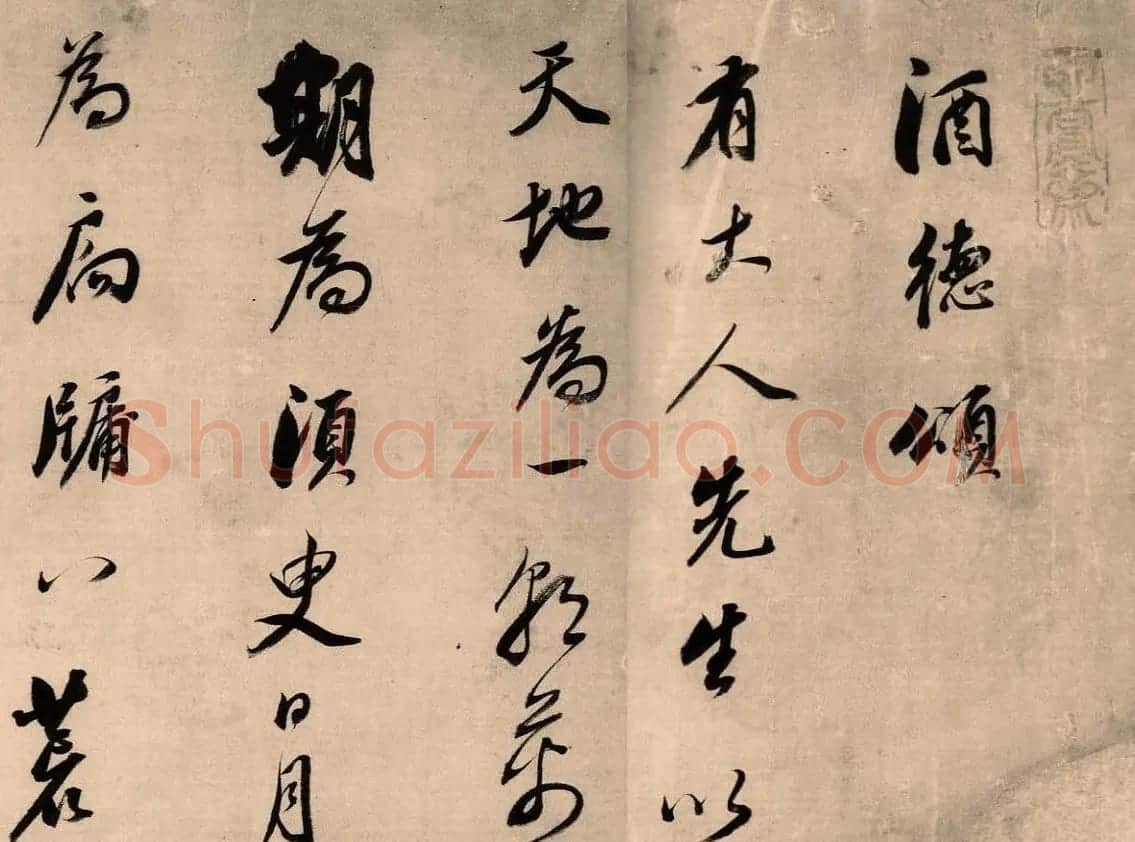 酒德頌
有大人先生以
天地為一朝萬
期為須臾日月
為扃牖八荒
Shufaziliao.COM